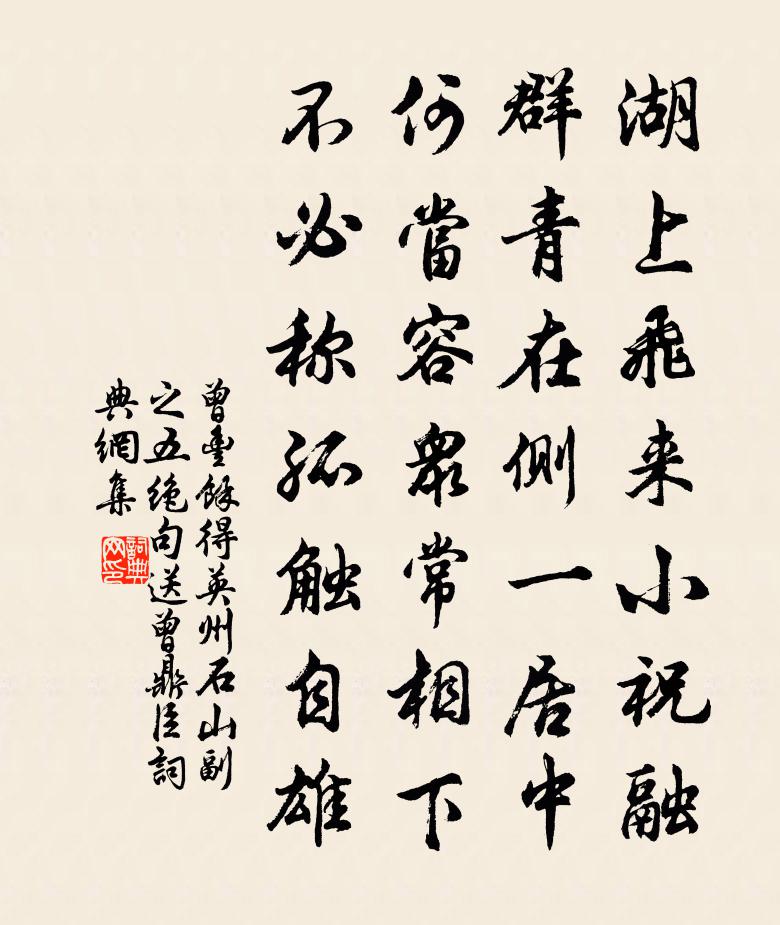 湖上飛来小祝融
群青在側一居中
何當容衆常相下
不必称孤触自雄
曾豊餘得英州石山副
之五绝句送曾鼎臣詞
典網集
詞典
网印